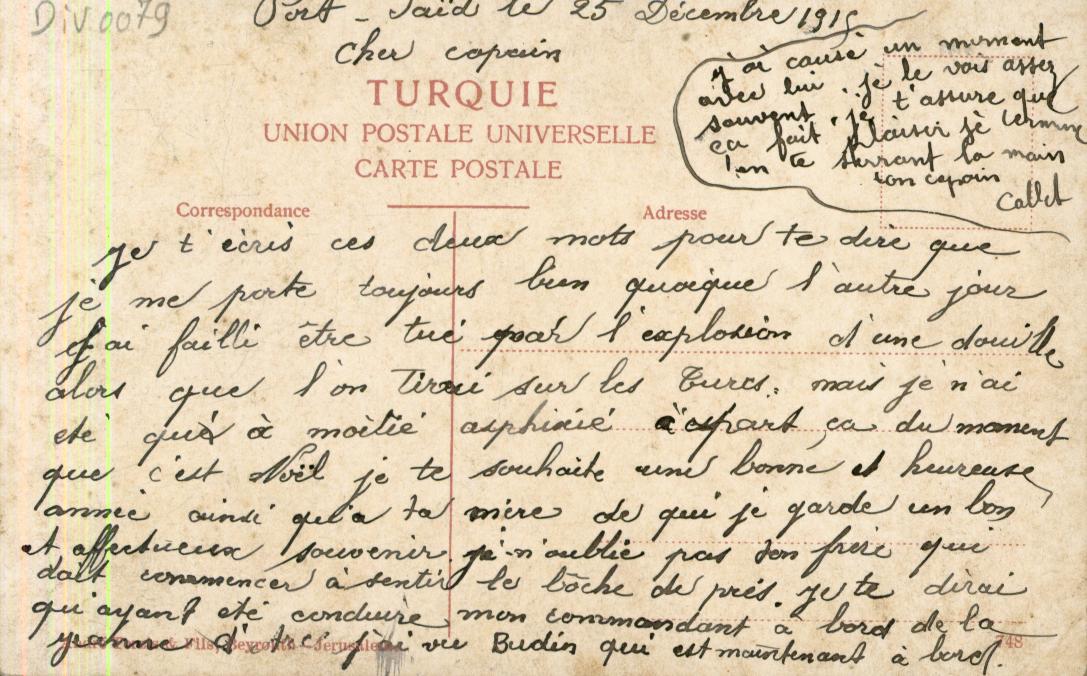 Div.0079
Port-Saïd le 25 Décembre 1915
Cher copain
TURQUIE
UNION POSTALE UNIVERSELLE
CARTE POSTALE
Correspondance
Adresse
je t'écris ces deux mots pour te dire que
je me porte toujours bien quoique l'autre jour
j'ai failli être tué par l'explosion d'une douille
alors que l'on tirai sur les Turcs. mais je n'ai
eté qué à moitié asphixié àespart ça du moment
que c'est Noël je te souhaite une bonne et heureuse
année ainsi qu'a ta mère de qui je garde un bon
et affectueux souvenir je n'oublie pas ton frère qui
doit commencer à sentir le bôche de prés. je te dirai
qu'ayant eté conduire mon commandant à bord de la
Jeanne d'Arc j'ai vu Budin qui est maintenant à bord.
& Fils, Beyrouth-Jérusalem
748
j'ai causé un moment
avec lui. je le vois assez
souvent. je t'assure que
ça fait plaisir je termine
en te serrant la main
ton copain
Callet